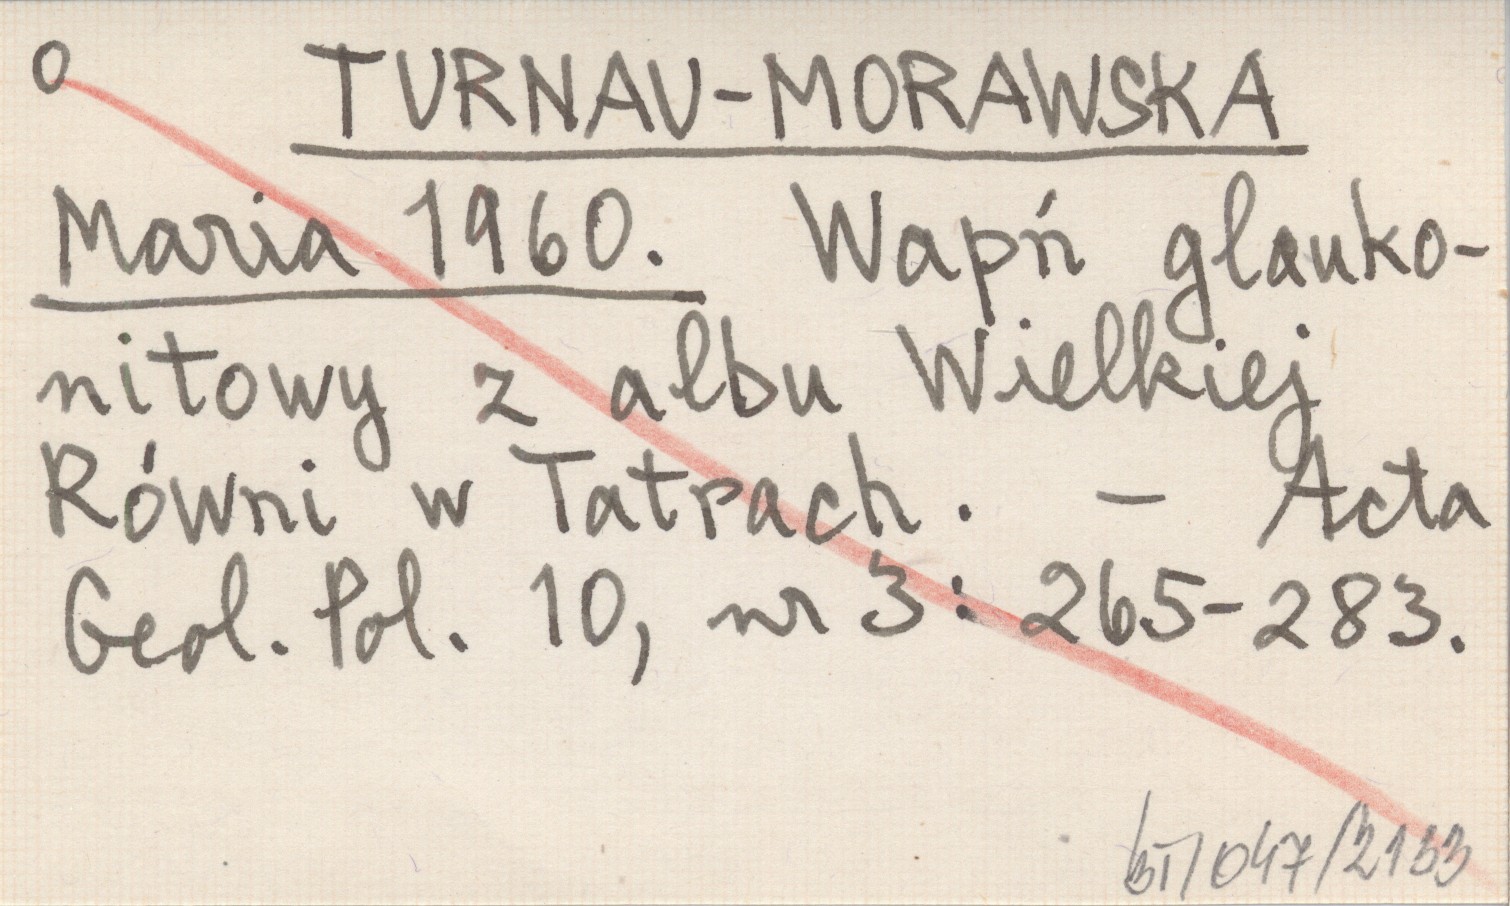 O TURNAU-MORAWSKA
Maria 1960. Wapń glauko-
nitowy z albu Wielkiej
Równi w Tatrach. - Acta
Geol. Pol. 10, nr 3: 265-283.
BT/047/2133